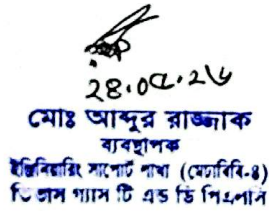 ২৪.০৫.২৬
মোঃ আব্দুর রাজ্জাক
ব্যবস্থাপক
ইঞ্জিনিয়ারিং সাপোর্ট শাখা (মেটাবিবি-৪)
তিতাস গ্যাস টি এন্ড ডি পিএলসি